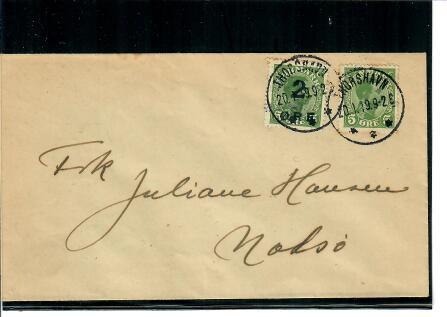 THORSHAVN
20.1.19.9-2.E
2
ØRE
THORSHAVN
20.1.19.9-2.E
5 ØRE 5
Frk
Juliane Hansen
Nolsö